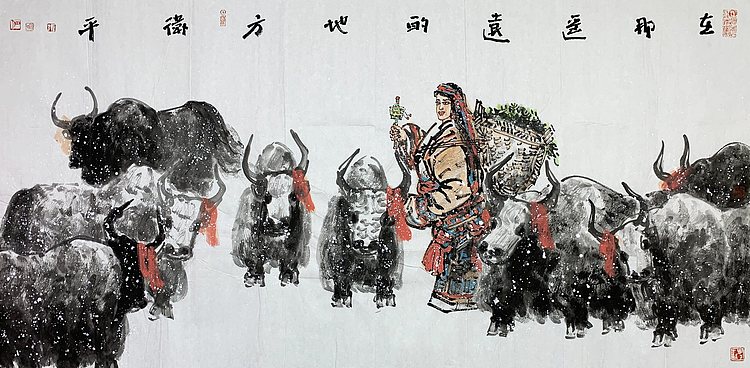 在那遥遠的地方 衛平